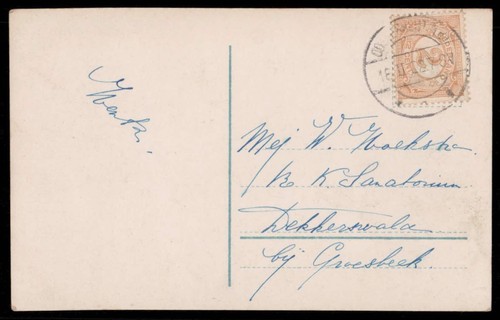 Mej W. Hoekstra
R K Sanatorium
Dekkerswald
bij Groesbeek.